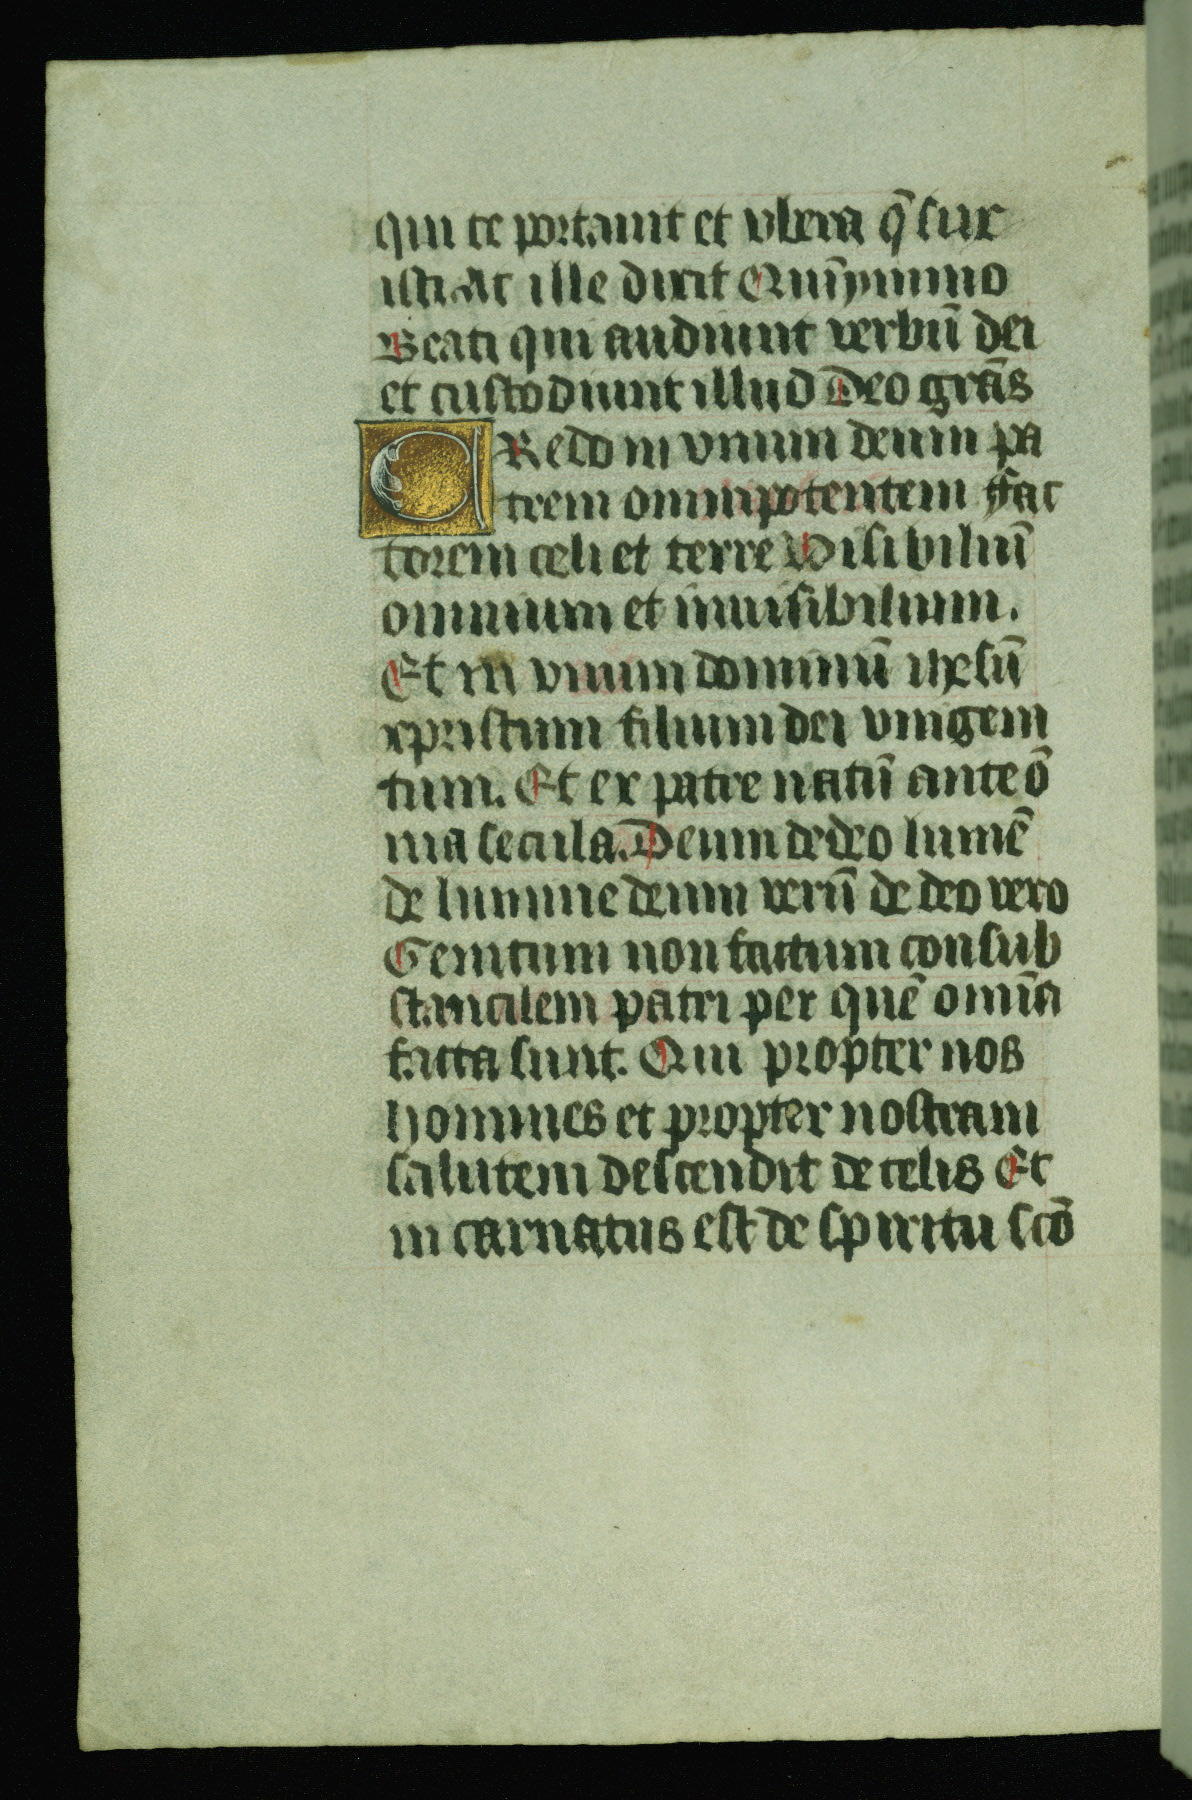 qui te portauit et vbera q̄ sux
isti At ille dixit Quīymmo
Beati qui audiunt verbū dei
et custodiunt illud Deo grās
CRedo in vnum deum pa
trem omnipotentem ffac
torem celi et terre Visibiliū
omnium et inuisibilium.
Et in vnum dominū ihesū
xpristum filium dei vnigeni
tum. Et ex patre natū ante ō
nia secula. Deum de deo lumē
de lumine deum verū de deo vero
Genitum non factum consub
stancilem patri per quē omīa
facta sunt. Qui propter nos
homines et propter nostram
salutem descendit de celis Et
in carnatus est de spiritu scō